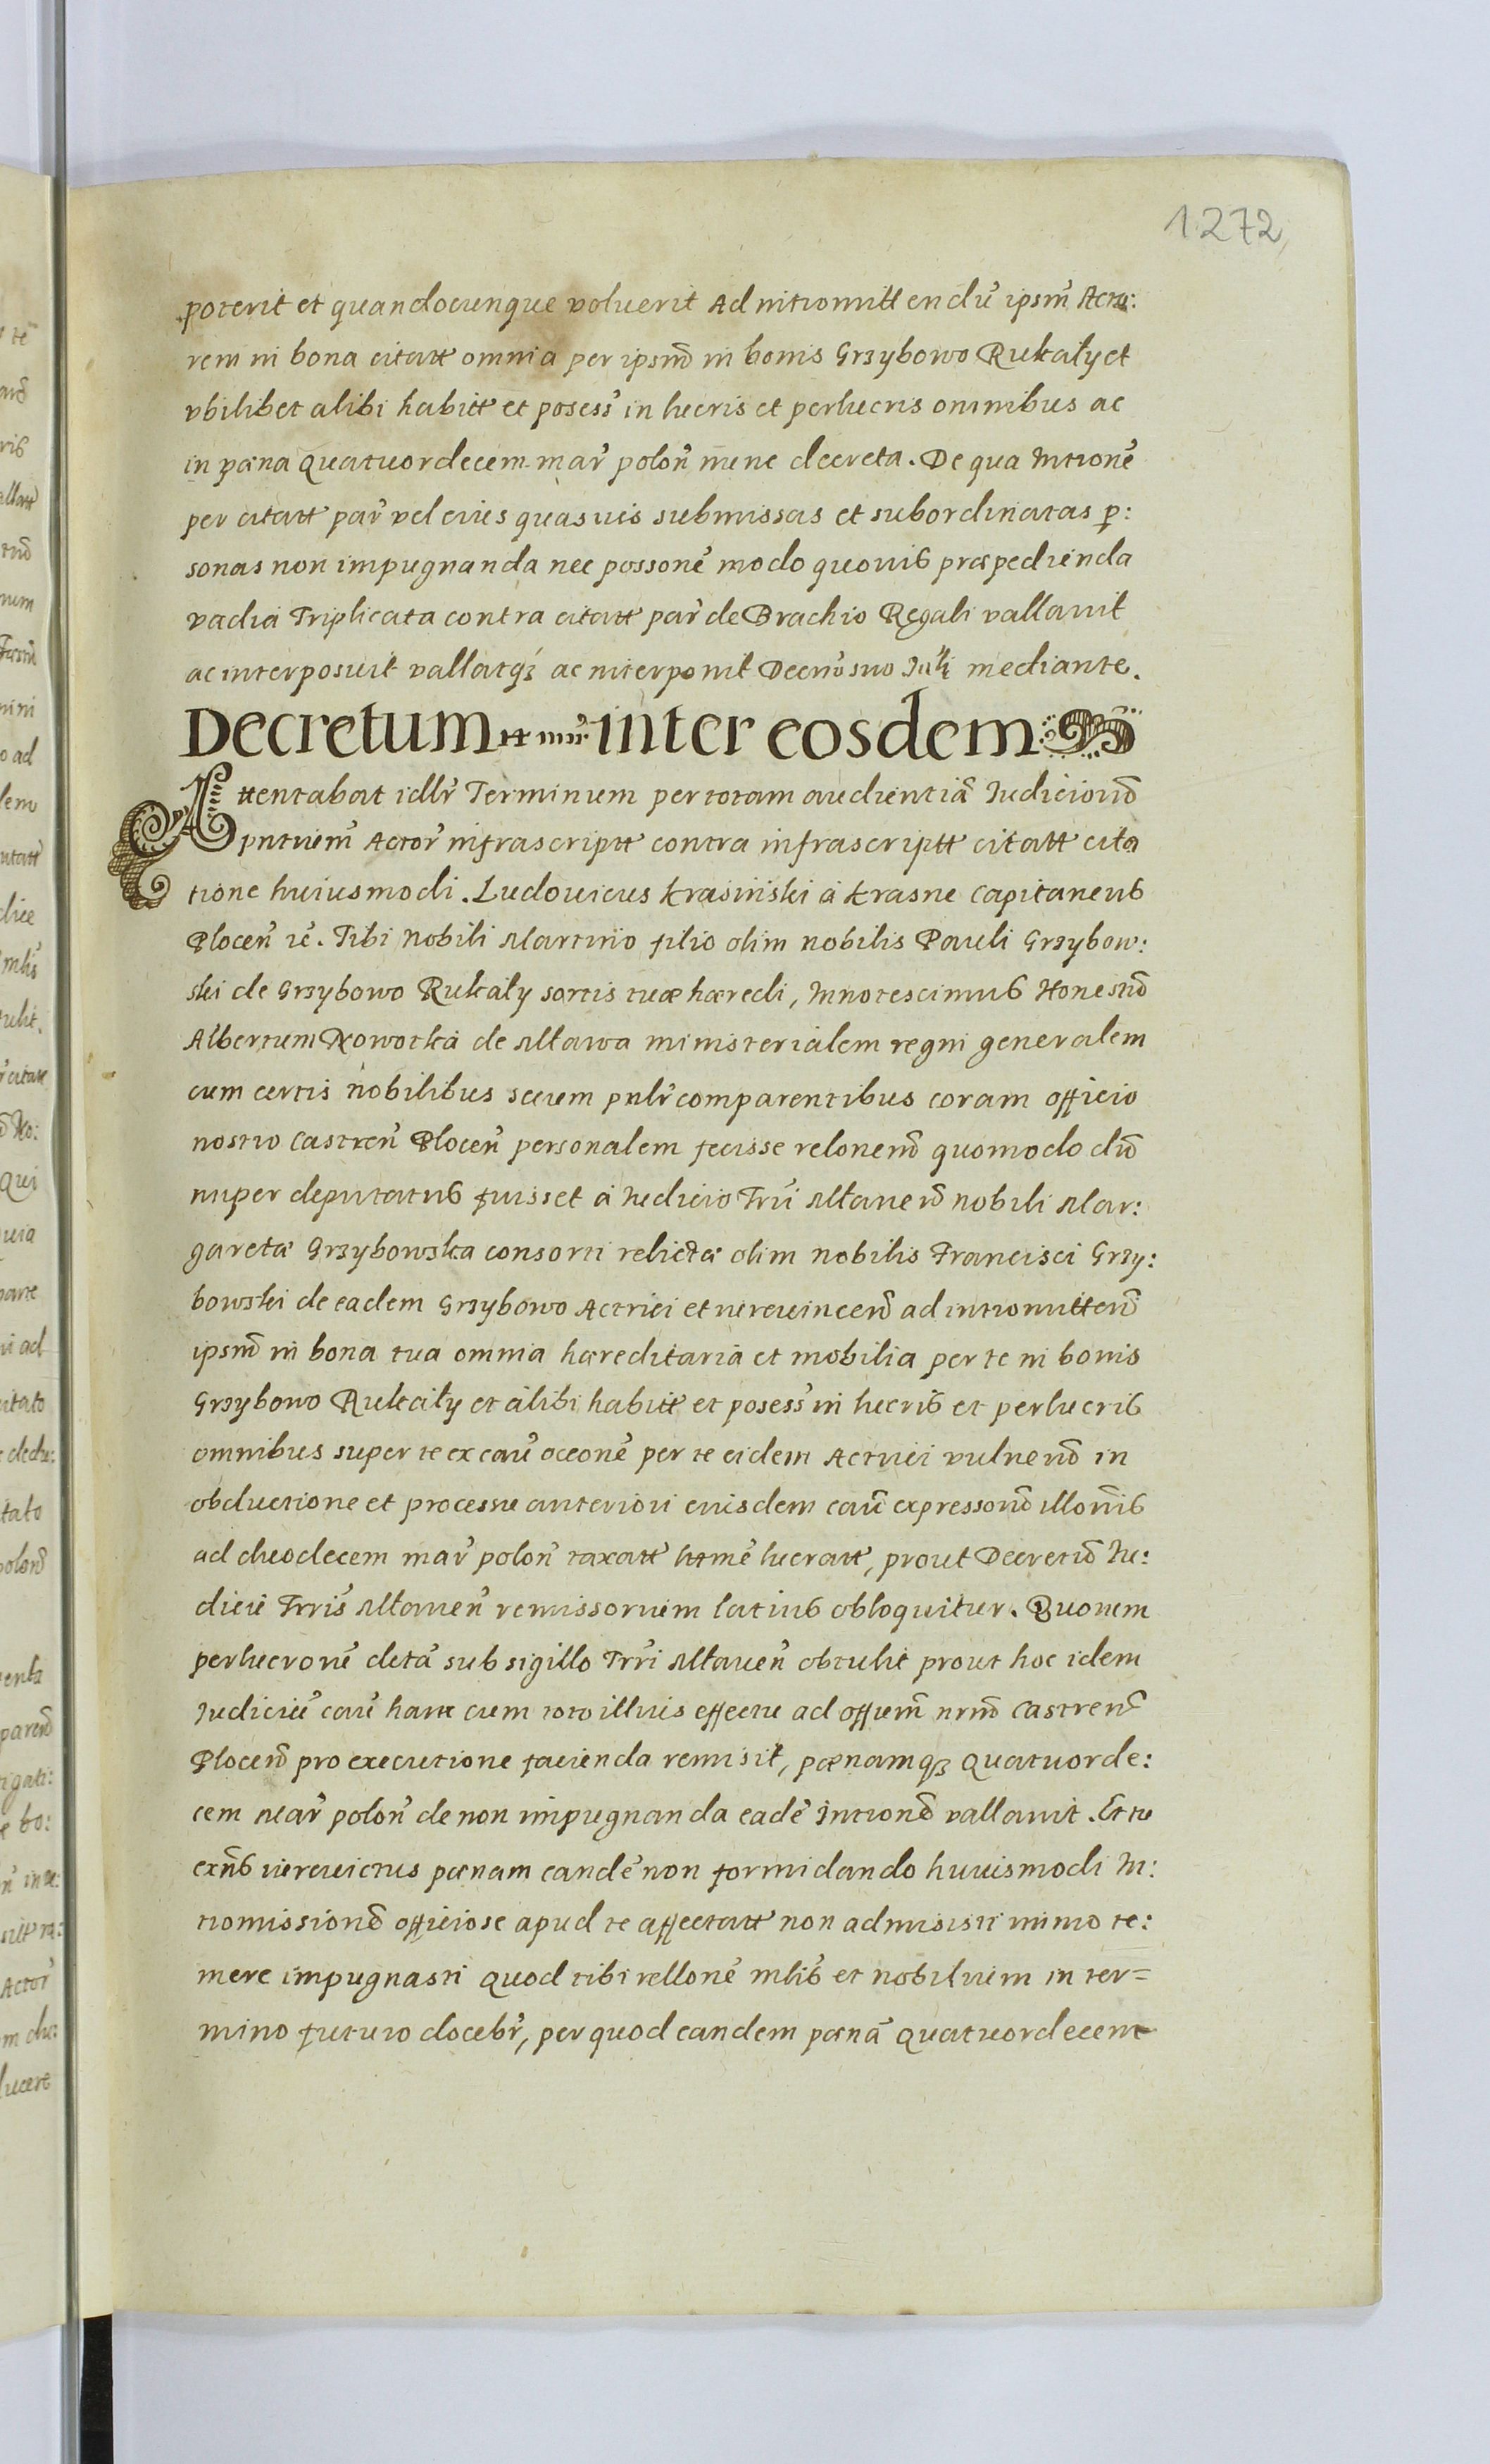 1272
poterit et quandocunque voluerit Ad intromittendũ ipsm̃ Acto:
rem in bona citatt omnia per ipsm̃ in bonis Grzybowo Rukały et
vbilibet alibi habitt et posess̃ in lucris et perlucris omnibus ac
in pæna Quatuordecem mar̃ polon̄ nunc decreta. De qua Intronẽ
per citatt par̃ vel eius quasuis submissas et subordinatas p:
sonas non impugnanda nec possonẽ modo quouis præpedienda
vadia Triplicata contra citatt par̃ de Brachio Regali vallauit
ac interposuit vallatqȝ ac interponit Decrto suo mediante.
Decretum inter eosdem
Attentabat idlr̃ Terminum per totam audientiã Iudiciorũ
pntium̃ Actor̃ infrascriptt contra infrascriptt citatt cita
tione huiusmodi. Ludouicus Krasiński á Krasne Capitaneus
Plocen̄ ic̃. Tibi Nobili Martino filio olim nobilis Pauli Grzybow:
ski de Grzybowo Rukały sortis tuæ hæredi, Innotescimus Honestũ
Albertum Nowotka de Mława ministerialem regni generalem
cum certis nobilibus secum pnlr̃ comparentibus coram officio
nostro Castren̄ Plocen̄ personalem fecisse relonem̃ quomodo dũ
nuper deputatus fuisset á Iudicio Trri Mławen̄ nobili Mar:
garetæ Grzybowska consorti relictæ olim nobilis Francisci Grzy:
bowski de eadem Grzybowo Actrici et iureuincen̄ ad intromitten̄
ipsm̃ in bona tua omnia hæreditaria et mobilia per te in bonis
Grzybowo Rukały et alibi habitt et posess̃ in lucris et perlucris
omnibus super te ex cau̇ occonẽ per te eidem Actrici vulnerũ in
obductione et processu anteriori eiusdem cau̇ expressorũ illonis
ad duodecem mar̃ polon̄ taxatt lucratt, prout Decretũ Iu:
dicii Trris̃ Mławen̄ remissorium latius obloquitur. Quonem
perlucronẽ detã sub sigillo Trri Mławen̄ obtulit prout hoc idem
Iudiciũ cau̇ hanc cum toto illius effectu ad offium̃ nrm̃ Castren̄
Plocen̄ pro executione facienda remisit, pænamqȝ Quatuorde:
cem Mar̃ polon̄ de non impugnanda eadẽ Intronẽ vallauit. Et tu
exñs iureuictus pænam eandẽ non formidando huiusmodi In:
tromissionẽ officiose apud te affectatt non admisisti immo te:
mere impugnasti Quod tibi rellonẽ mlis̃ et nobilium in ter=
mino futuro docebr̃, per quod eandem pænã Quatuordecem